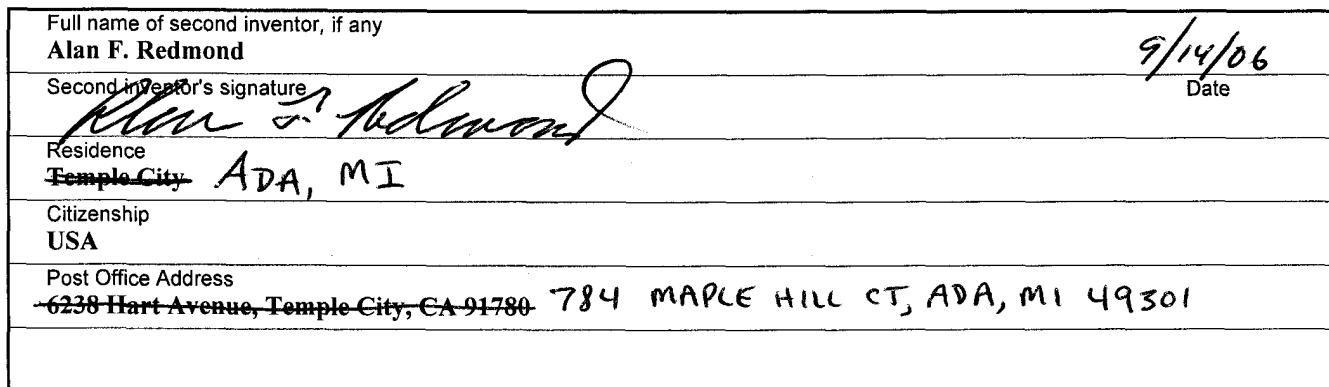 Full name of second inventor, if any
Alan F. Redmond
9/14/06
Second inventor's signature
Date
Alan F. Redmond
Residence
Temple City ADA, MI
Citizenship
USA
Post Office Address
6238 Hart Avenue, Temple City, CA 91780 784 MAPLE HILL CT, ADA, MI 49301